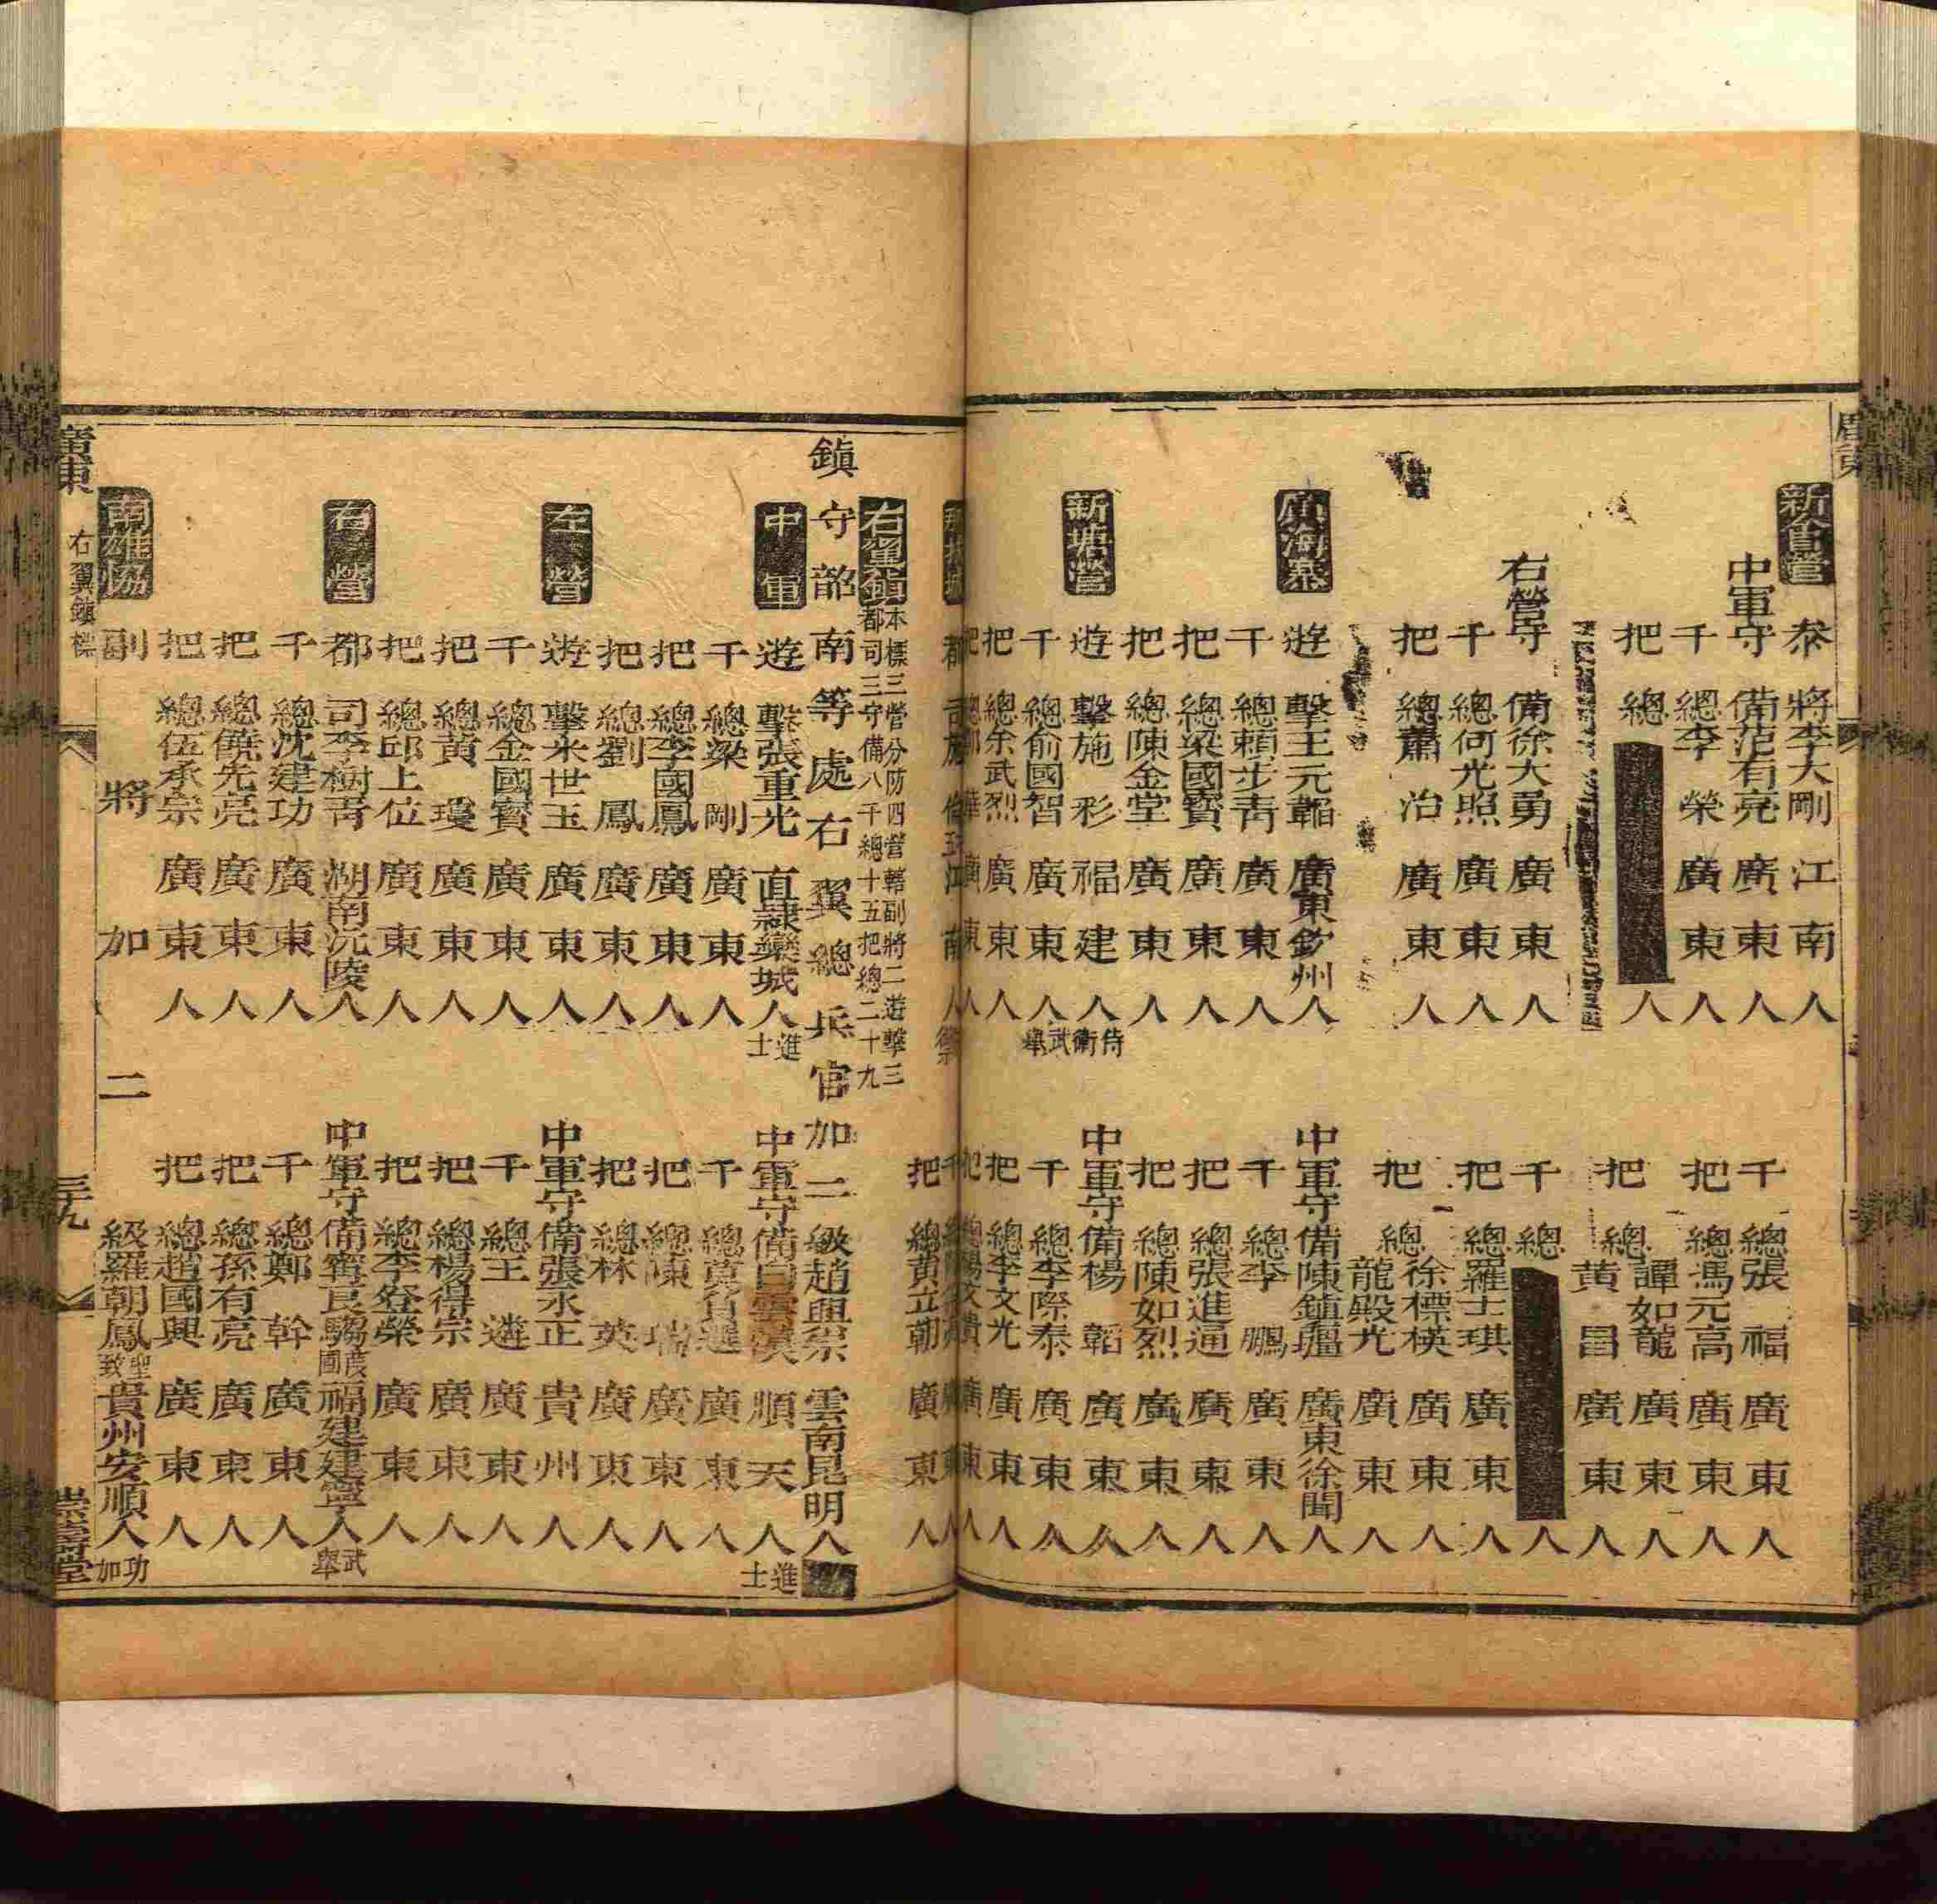 新會營
叅將李大剛江南人
中軍守備范有亮廣東人
千總張福廣東人
千總李榮廣東人
把總馮元高廣東人
把總
人
把總譚如龍廣東人
黃昌廣東人
右營守備徐大勇廣東人
千總
人
千總何光照廣東人
把總羅士琪廣東人
把總蕭治廣東人
把總徐標模廣東人
龍殿光廣東人
廣海寨
遊擊王元韜廣東欽州人
中軍守備陳鎮壃廣東徐聞人
千總賴步青廣東人
千總李鵬廣東人
把總梁國寶廣東人
把總張進逼廣東人
把總陳金堂廣東人
把總陳如烈廣東人
新塘營
遊擊施彩福建人侍衛武舉
中軍守備楊韜廣東人
千總俞國智廣東人
千總李際泰廣東人
把總余武烈廣東人
把總李文光廣東人
把總黃立朝廣東人
右翼鎮
本標三營分防四營轄副將二遊擊三
都司三守備八千總十五把總二十九
鎮守韶南等處右翼總兵官加二級趙興宗雲南昆明人
中軍
遊擊張重光直隸欒城人進士
中軍守備白雲漢順天人進士
千總梁剛廣東人
千總莫有進廣東人
把總李國鳳廣東人
把總陳瑞廣東人
把總劉鳳廣東人
把總林英廣東人
左營
遊擊米世玉廣東人
中軍守備張永正貴州人
千總金國寶廣東人
千總王遴廣東人
把總黃瓊廣東人
把總楊得宗廣東人
把總邱上位廣東人
把總李登榮廣東人
右營
都司李樹青湖南沅陵人
中軍守備甯良騶福建建寧人武舉
千總沈建功廣東人
千總鄭幹廣東人
把總饒先亮廣東人
把總孫有亮廣東人
把總伍承宗廣東人
把總趙國興廣東人
南雄協
副將加二級羅朝鳳聖致貴州安順人功加
廣東
右翼鎮標
三九
崇壽堂